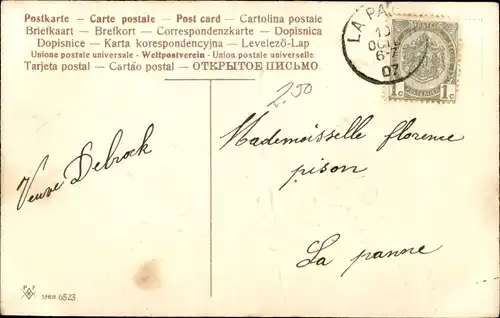 Postkarte — Carte postale — Post card — Cartolina postale
Briefkaart — Brefkort — Correspondenzkarte — Dopisnica
Dopisnice — Karta korespondencyjna — Levelező-Lap
Unione postale universale - Weltpostverein - Union postale universelle
Tarjeta postal — Cartão postal — ОТКРЫТОЕ ПИСЬМО.
LA PA
10
OCT
6-
07
1c 1c
2.50
Mademoisselle florence
pison
La panne
Veuve Debrock
SERIE 6523